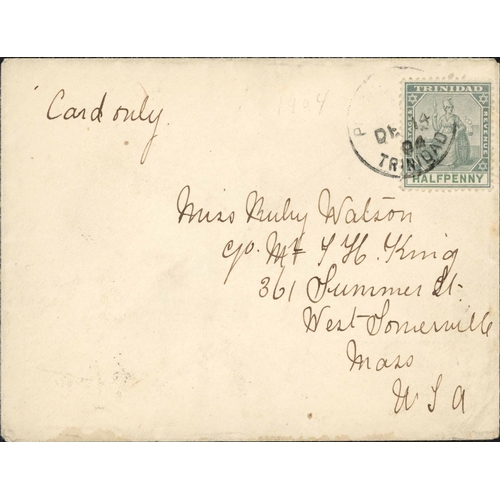 Card only.
1904
TRINIDAD
POSTAGE & REVENUE
HALFPENNY
DE 14
04
TRINIDAD
Miss Ruby Watson
c/o. Mr J H. King
361 Summer St.
West Somerville
Mass
U S A